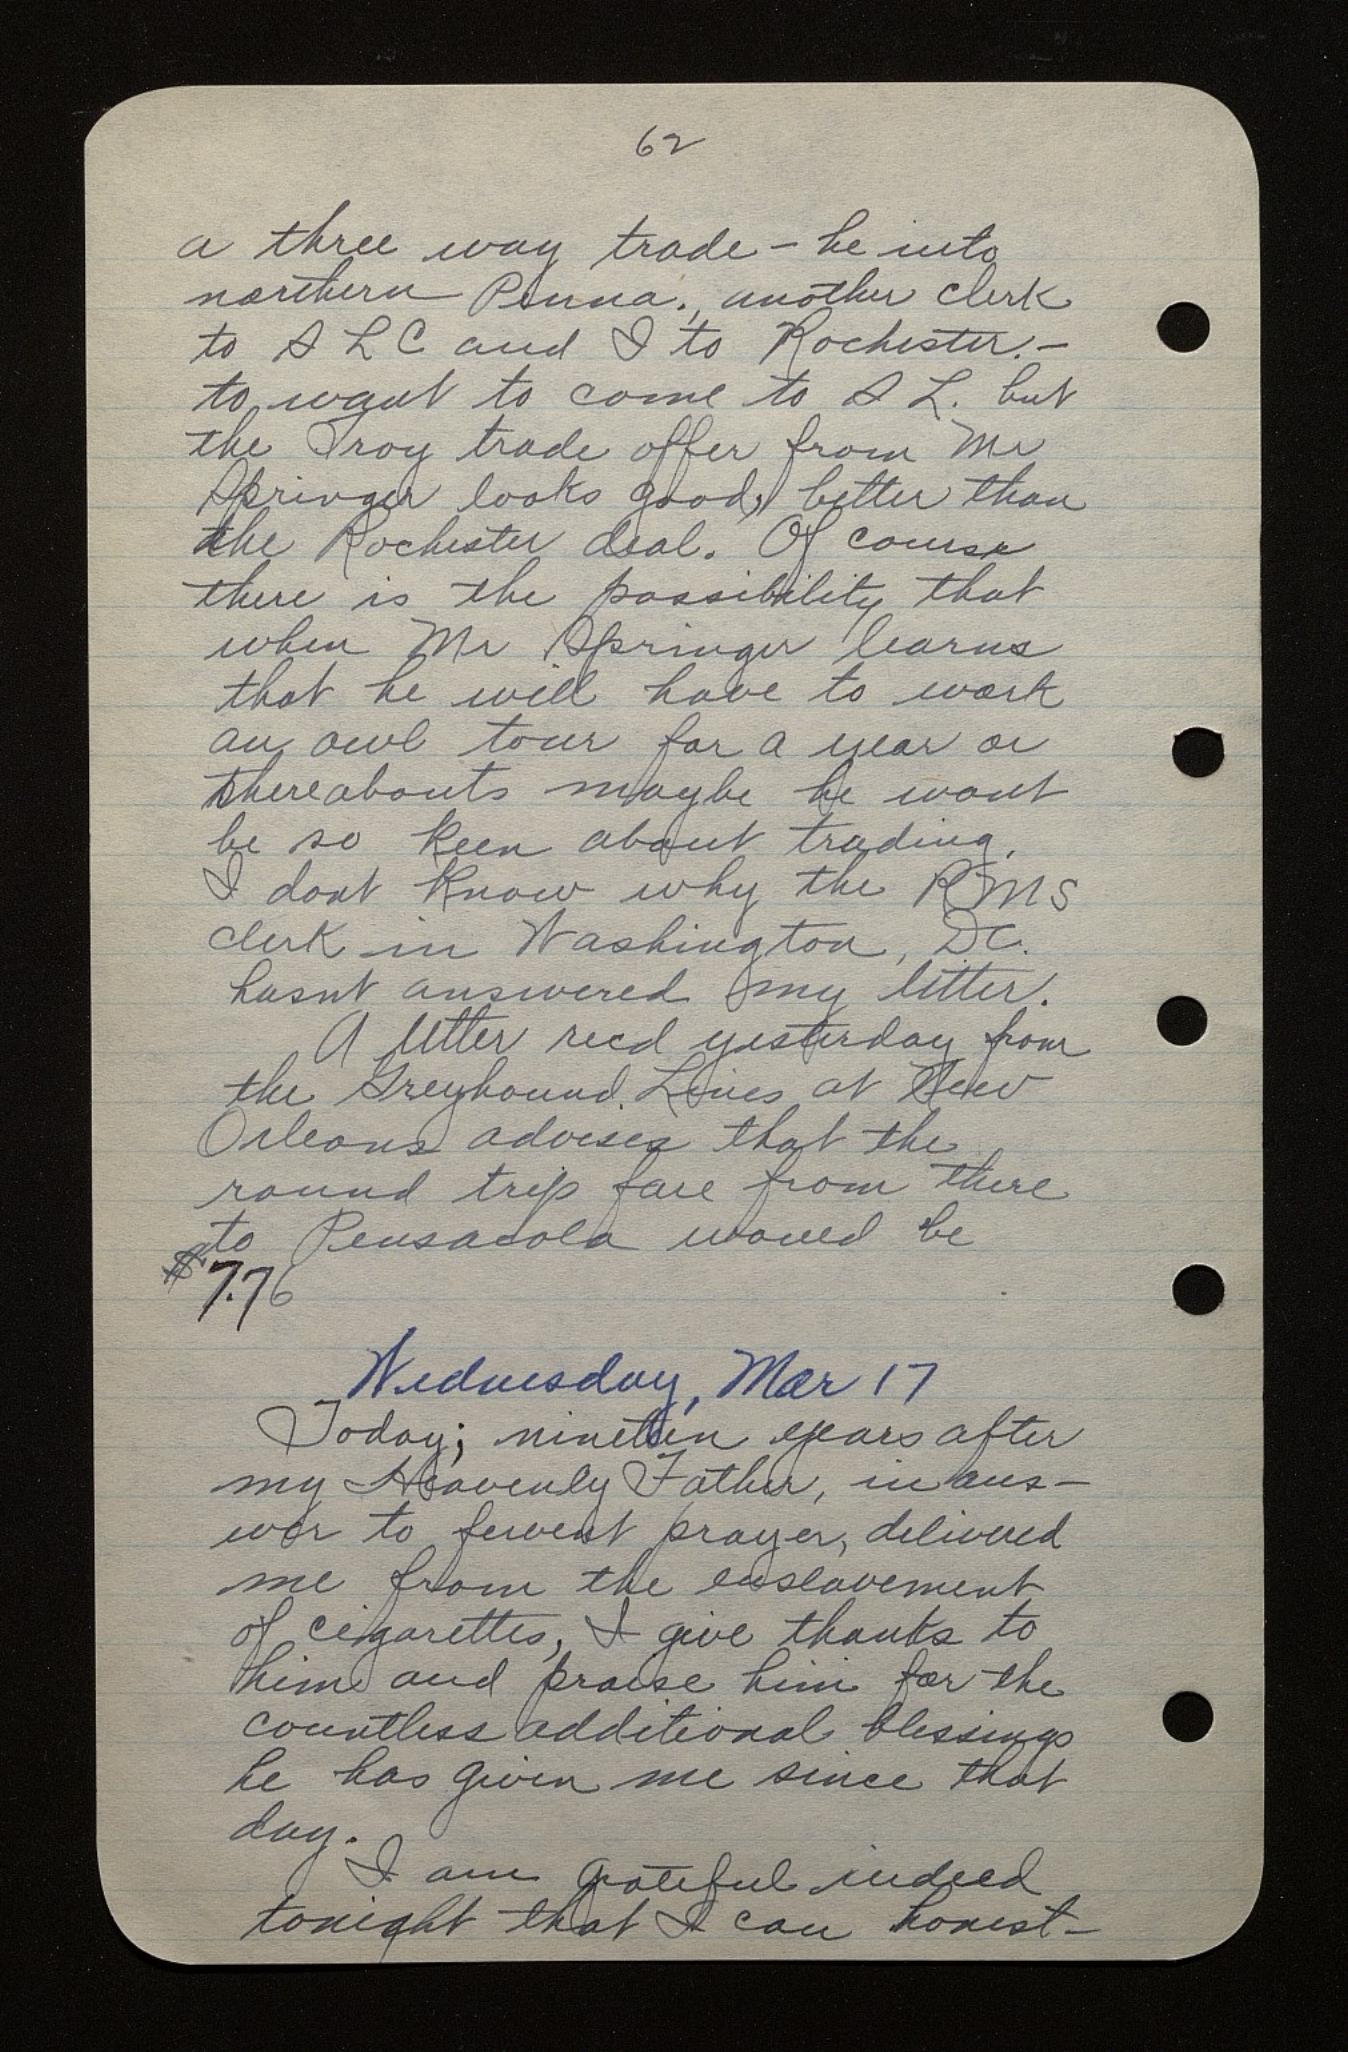 62
a three way trade - he into
northern Penna., another clerk
to S L C and I to Rochester. -
to want to come to S L. but
the Troy trade offer from Mr
Springer looks good, better than
the Rochester deal. Of course
there is the possibility that
when Mr Springer learns
that he will have to work
an owl tour for a year or
thereabouts maybe he wont
be so keen about trading.
I dont know why the RMS
clerk in Washington, DC.
hasnt answered my letter.
A letter recd yesterday from
the Greyhound Lines at New
Orleans advises that the
round trip fare from there
to Pensacola would be
$7.76
Wednesday, Mar 17
Today; nineteen years after
my Heavenly Father, in ans-
wer to fervent prayer, delivered
me from the enslavement
of cigarettes, I give thanks to
him and praise him for the
countless additional blessings
he has given me since that
day.
I am grateful indeed
tonight that I can honest-